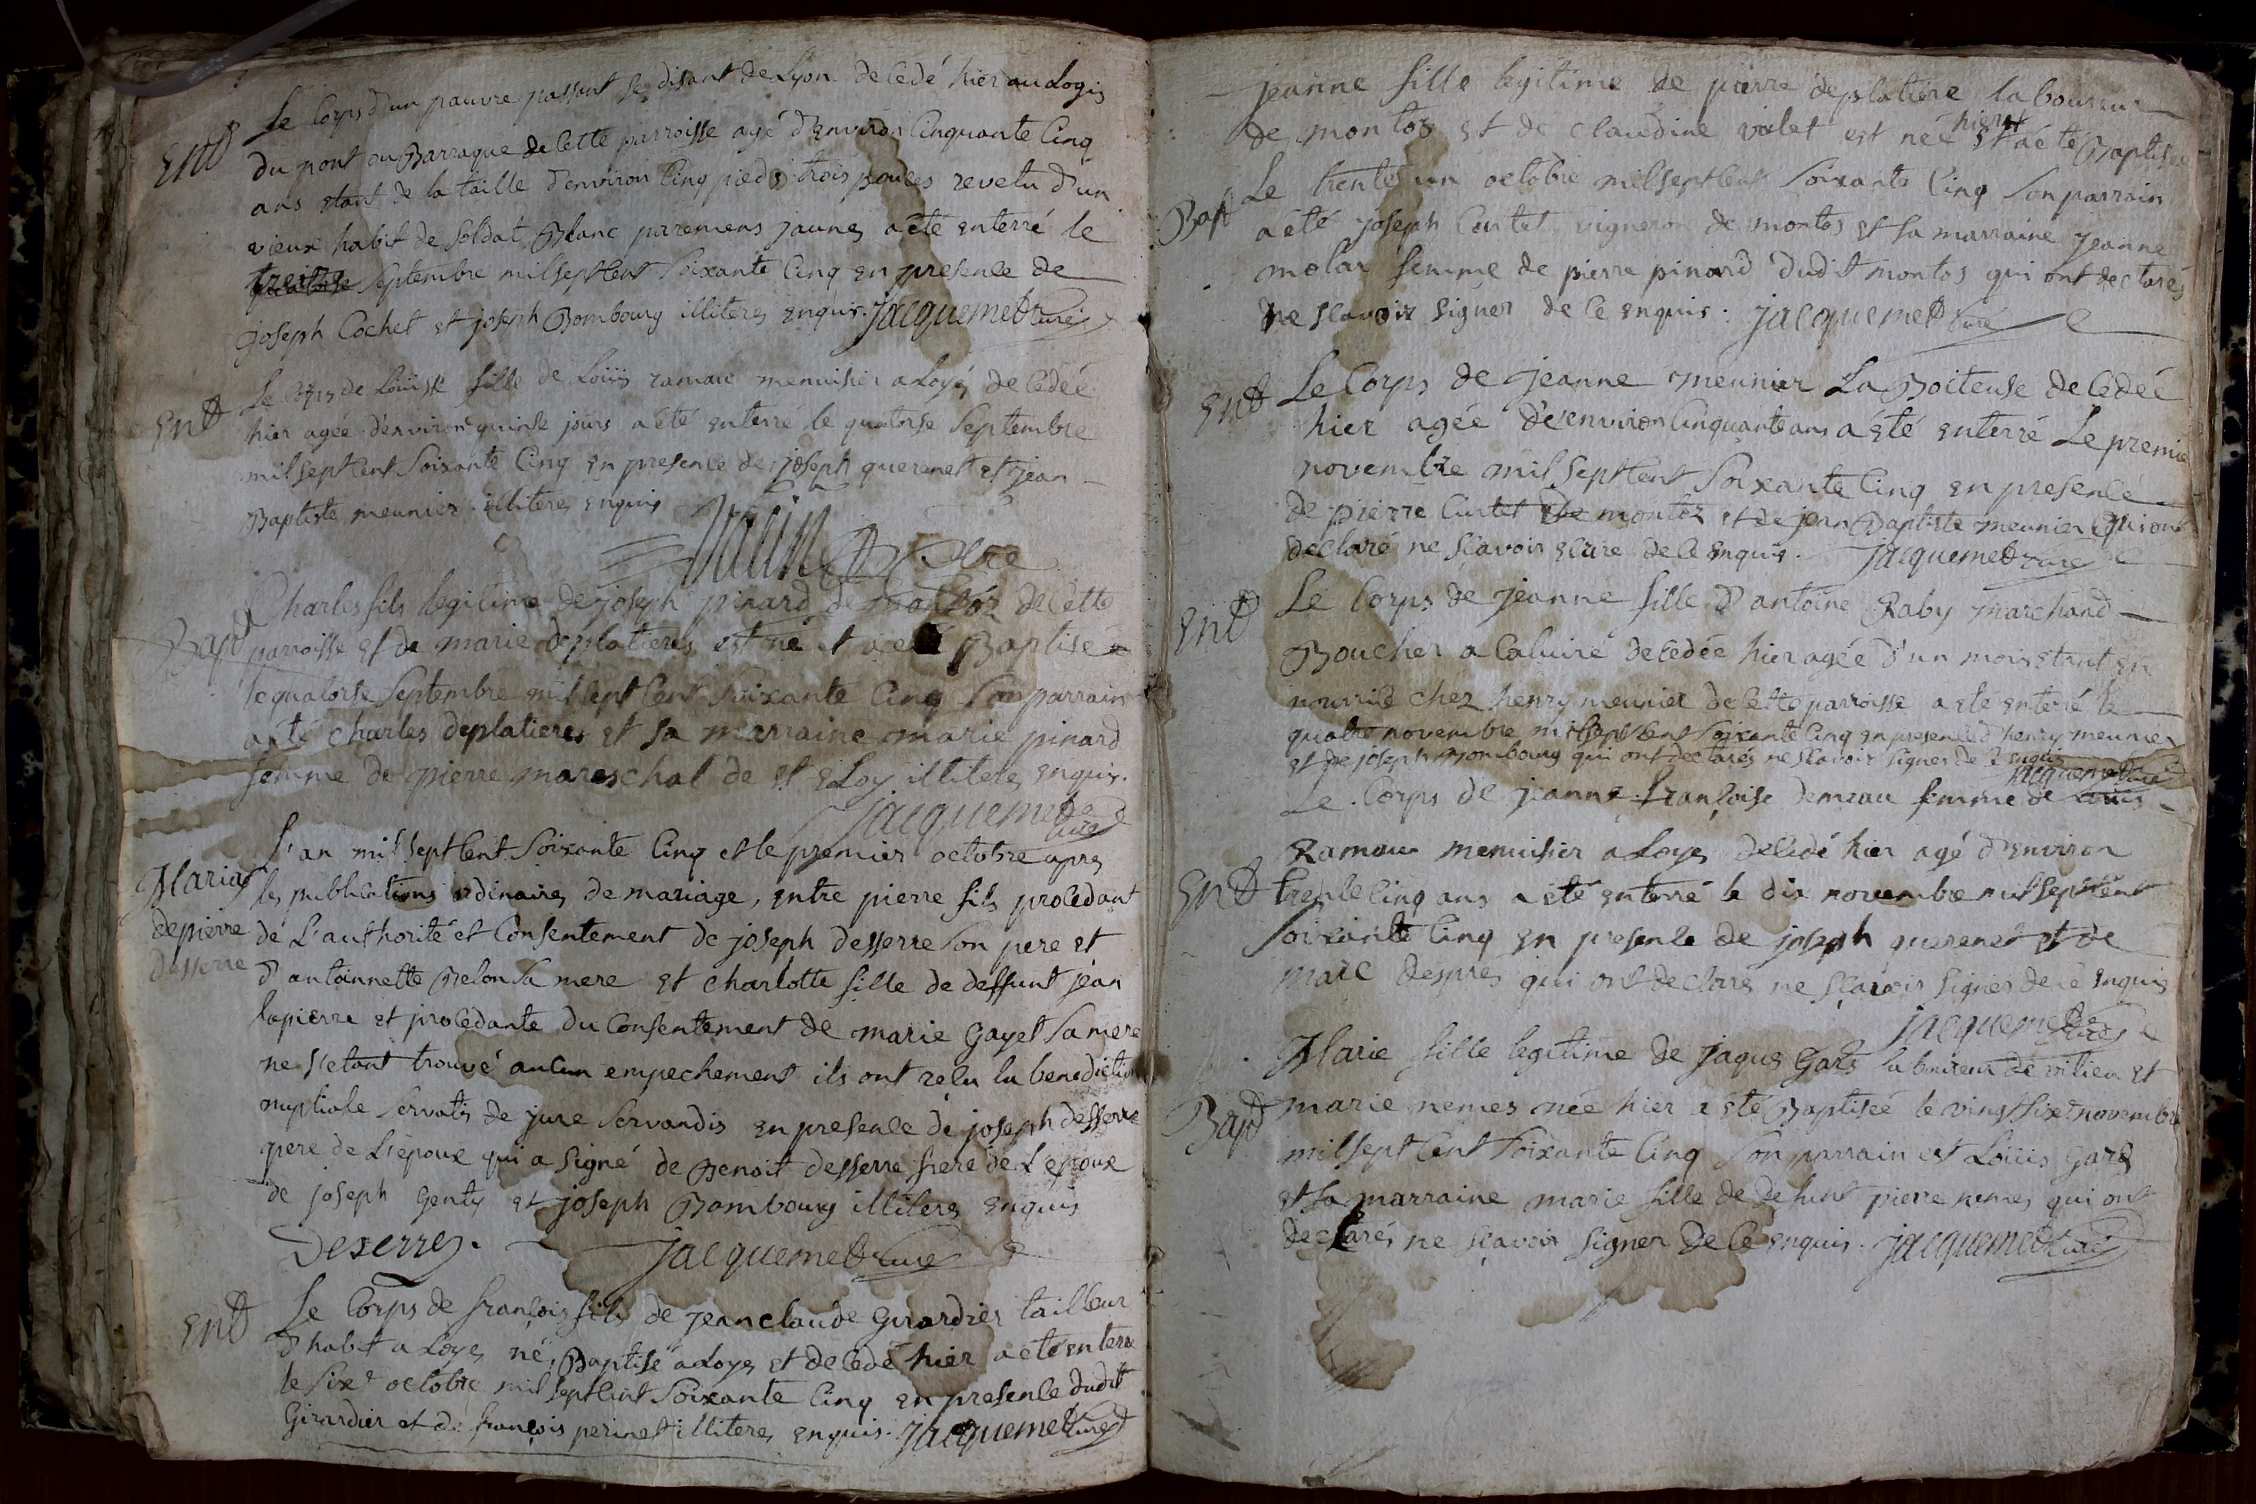 Le Corps d'un pauvre passant se disant de Lyon decedé hier au Logis
Entt
du pont ou Barraque de cette parroisse agé d'environ Cinquante Cinq
ans etant de la taille d'environ Cinq pieds trois pouces revetu d'un
vieux habit de soldat Blanc paremens jaunes a été enterré le
treitze septembre mil sept cent soixante Cinq en presence de
joseph Cochet et joseph Bombourg illiteres enquis. jacquemet curé
Le corps de Loüise fille de Loüis ramau menuisier a Loyes decedée
Entt
hier agée d'environ quinse jours a été enterré le quatorse Septembre
mil sept cent Soixante Cinq en presence de joseph querenet et jean
Baptiste meunier illiteres enquis
Charles fils legitime de joseph pinard de montoz de cette
Bapt
parroisse et de marie deplatieres est né et a eté Baptisé
le quatorse Septembre mil sept cent soixante Cinq Son parrain
a été charles deplatieres et sa marraine marie pinard
femme de pierre mareschal de st Eloy illiteres enquis.
jacquemet curé
L'an mil sept cent Soixante Cinq et le premier octobre apres
Mariag
de pierre
desserre
les publications ordinaires de mariage, entre pierre fils procedant
de L'authorité et Consentement de joseph desserre Son pere et
d'antoinnette Belon Sa mere et charlotte fille de deffunt jean
lapierre et procedante du Consentement de marie Gayet Sa mere
ne s'etant trouvé aucun empechement ils ont reçu la benediction
nuptiale servatis de jure servandis en presence de joseph desserre
pere de L'epoux qui a signé de Benoit desserre frere de L'epoux
de joseph Genty et joseph Bombourg illiteres enquis
Dexerres. jacquemet curé
Entt
Le Corps de françois fils de jean claude Girardier tailleur
d'habit a Loyes né, Baptisé a Loyes et decedé hier a eté enterré
le six e octobre mil sept cent Soixante Cinq en presence dudit
Girardier et de françois perinet illiteres enquis. jacquemet curé
jeanne fille legitime de pierre deplatiere laboureur
de montos et de claudine valet est née hier et a été Baptisée
Bapt
Le trente un octobre mil sept cent Soixante Cinq Son parrain
a été joseph Curtet vigneron de montos et sa marraine jeanne
molar femme de pierre pinard dudit montos qui ont declarés
ne sçavoir signer de ce enquis. jacquemet curé
Entt
Le Corps de jeanne meunier La Boiteuse decedée
hier agée d'environ Cinquante ans a été enterré Le premier
novembre mil sept cent Soixante Cinq en presence
de pierre Curtet de montoz et de jean Baptiste meunier qui ont
declaré ne sçavoir ecrire de ce enquis. jacquemet curé
Entt
Le Corps de jeanne fille d'antoine Raby marchand
Boucher a Caluire decedée hier agée d'un mois etant en
nourrice chez henry meunier de cette parroisse a eté enterré le
quatre novembre mil sept cent soixante Cinq en presence d'henry meunier
et de joseph Bombourg qui ont declarés ne sçavoir signer de ce enquis
jacquemet curé
Le Corps de jeanne françoise demeau femme de Louis
Ramau menuisier a Loyes decedé hier agé d'environ
Entt
trente Cinq ans a été enterré le dix novembre mil sept cent
Soixante Cinq en presence de joseph querenet et de
marc despres qui ont declarés ne sçavoir signer de ce enquis
jacquemet curé
Marie fille legitime de jaques Garz laboureur de vilieu et
Bapt
marie nemes née hier a été Baptisée le vingt sixe novembre
mil sept Cent Soixante Cinq Son parrain est Loüis Garz
et Sa marraine marie fille de defunt pierre nemes qui ont
declarés ne sçavoir signer de ce enquis. jacquemet curé